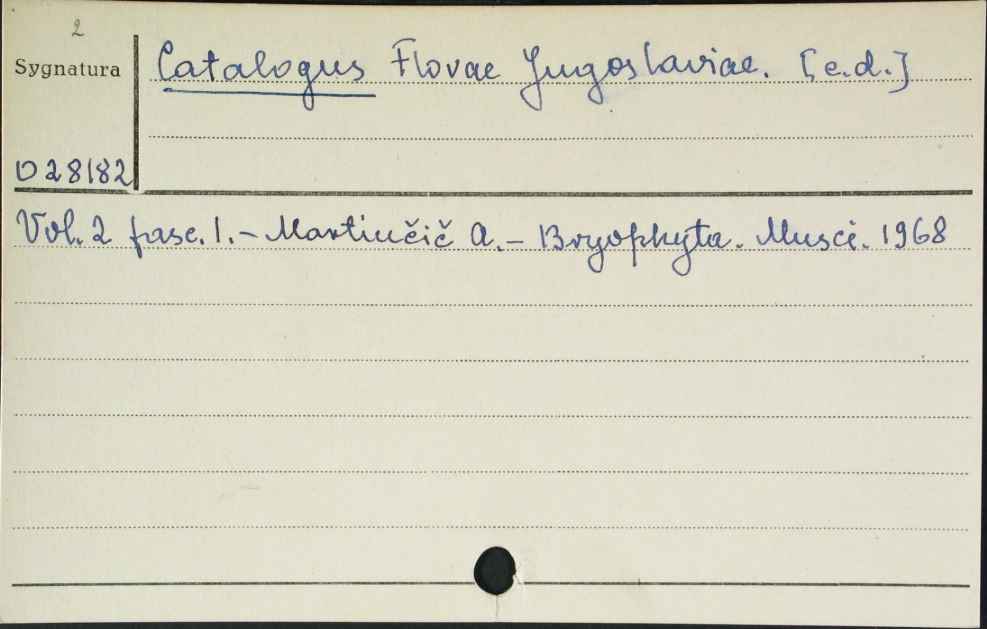 2
Sygnatura
Catalogus Florae Jugoslaviae. [c.d.]
D 28182
Vol. 2 fasc. 1. – Martinčič A. – Bryophyta. Musci. 1968